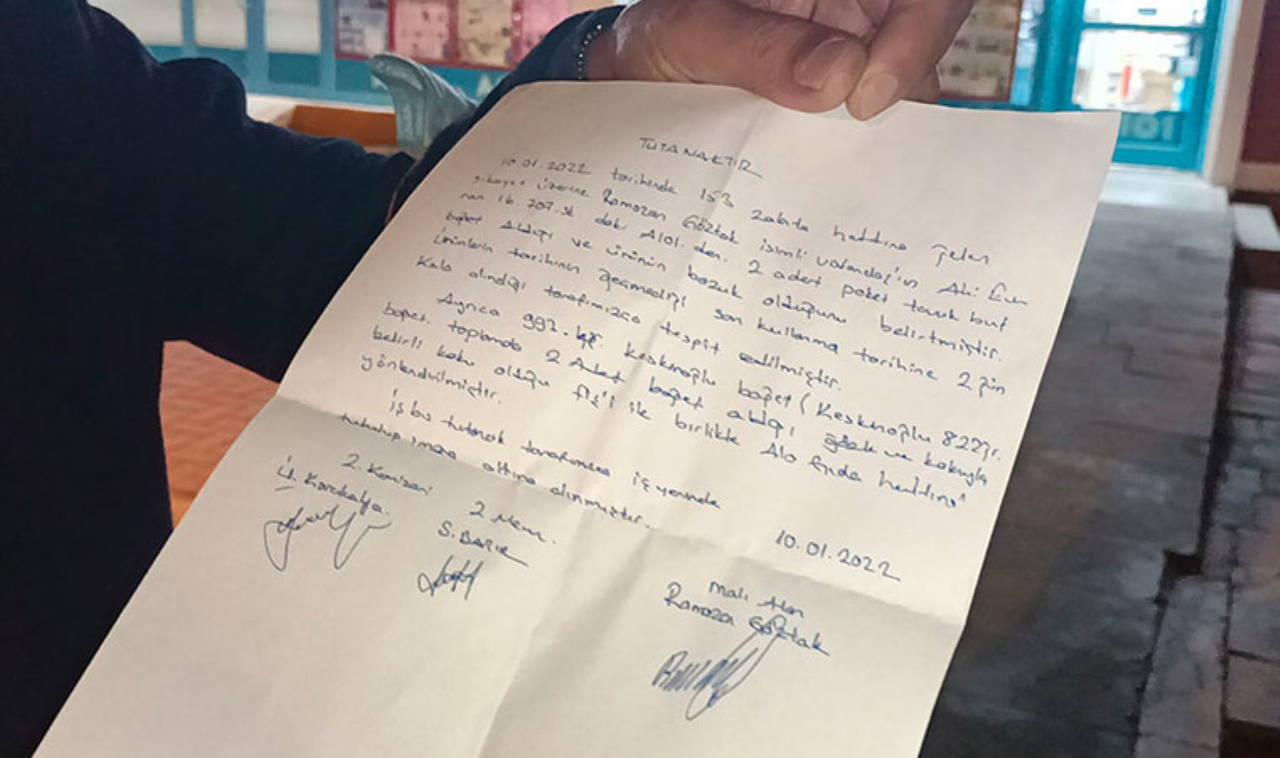 TUTANAKTIR
10.01.2022 tarihinde 153 zabıta hattına gelen
şikayet üzerine Ramazan Göztok isimli vatandaş'ın Ahi Evran
16. 707.sk daki A101.den. 2 adet paket tavuk but
bofet Aldığı ve ürünün bozuk olduğunu belirtmiştir.
Ürünlerin tarihinin geçmediği son kullanma tarihine 2 gün
Kala alındığı tarafımızca tespit edilmiştir.
Ayrıca 992. gr. Keskinoğlu bofet (Keskinoğlu 822gr.
bofet. toplamda 2 Adet bofet aldığı ve kokuyla
belirli koku olduğu fiş'i ile birlikte Alo Gıda hattına
yönlendirilmiştir.
İş bu tutanak tarafımızca iş yerinde
tutulup imza altına alınmıştır.
10.01.2022
Z. Komiseri
Ü. Karakaya.
Z Mem.
S. BARIK
Malı Alan
Ramazan Göztok